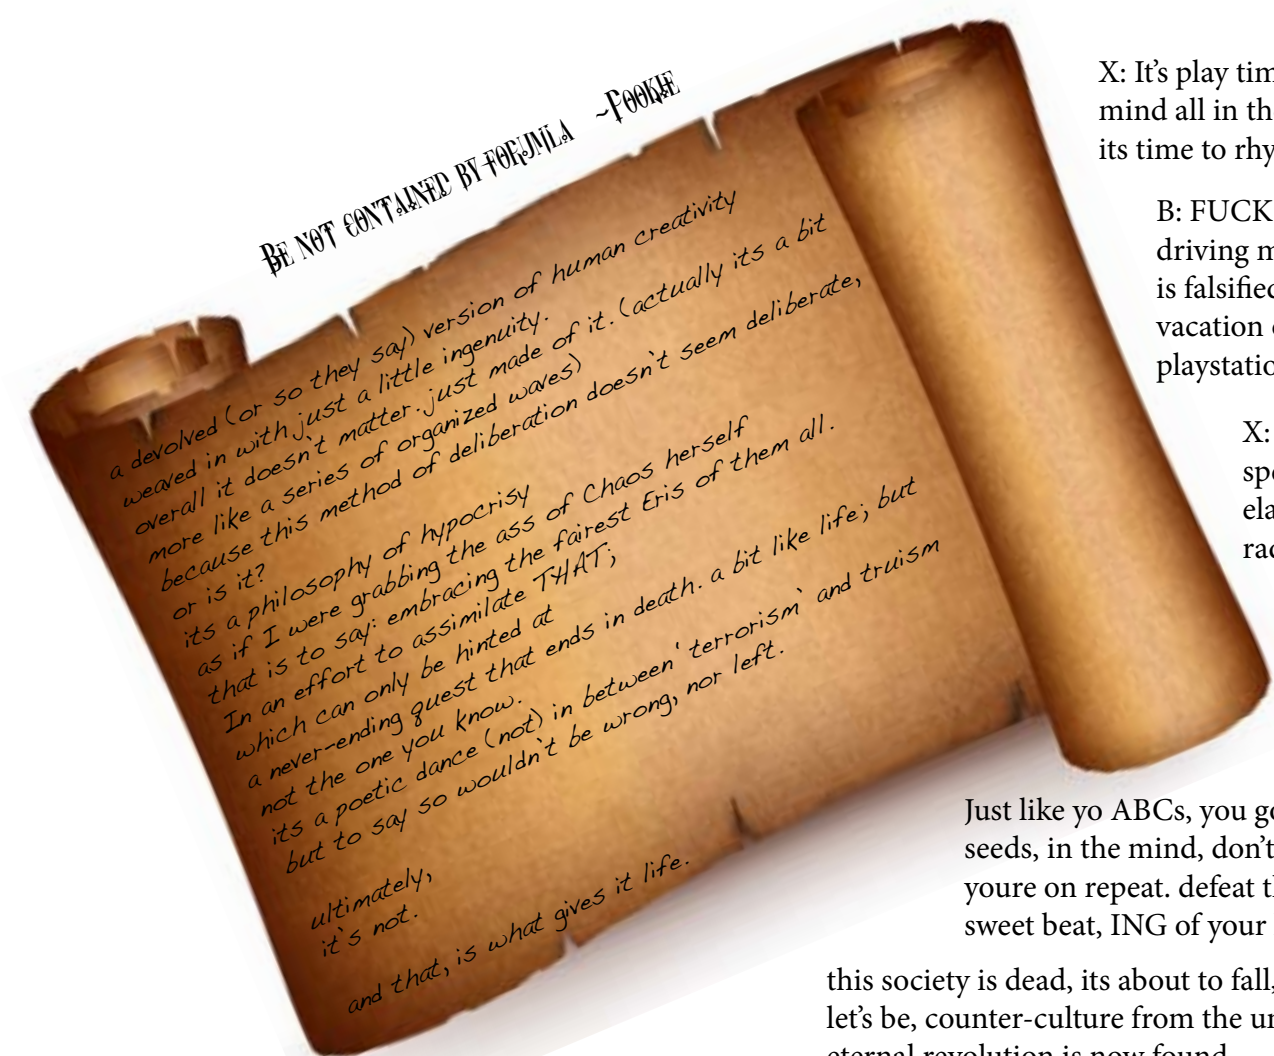 BE NOT CONTAINED BY FORUMLA ~POOKIE
a devolved (or so they say) version of human creativity
weaved in with just a little ingenuity.
overall it doesn't matter. just made of it. (actually its a bit
more like a series of organized waves)
because this method of deliberation doesn't seem deliberate,
or is it?
its a philosophy of hypocrisy
as if I were grabbing the ass of Chaos herself
that is to say: embracing the fairest Eris of them all.
In an effort to assimilate THAT;
which can only be hinted at
a never-ending quest that ends in death. a bit like life; but
not the one you know.
its a poetic dance (not) in between 'terrorism' and truism
but to say so wouldn't be wrong, nor left.
ultimately,
it's not.
and that, is what gives it life.
X: It's play tim
mind all in th
its time to rhy
B: FUCK
driving m
is falsified
vacation
playstatio
X:
spe
ela
rac
Just like yo ABCs, you go
seeds, in the mind, don't
youre on repeat. defeat th
sweet beat, ING of your
this society is dead, its about to fall,
let's be, counter-culture from the un
eternal revolution is now found